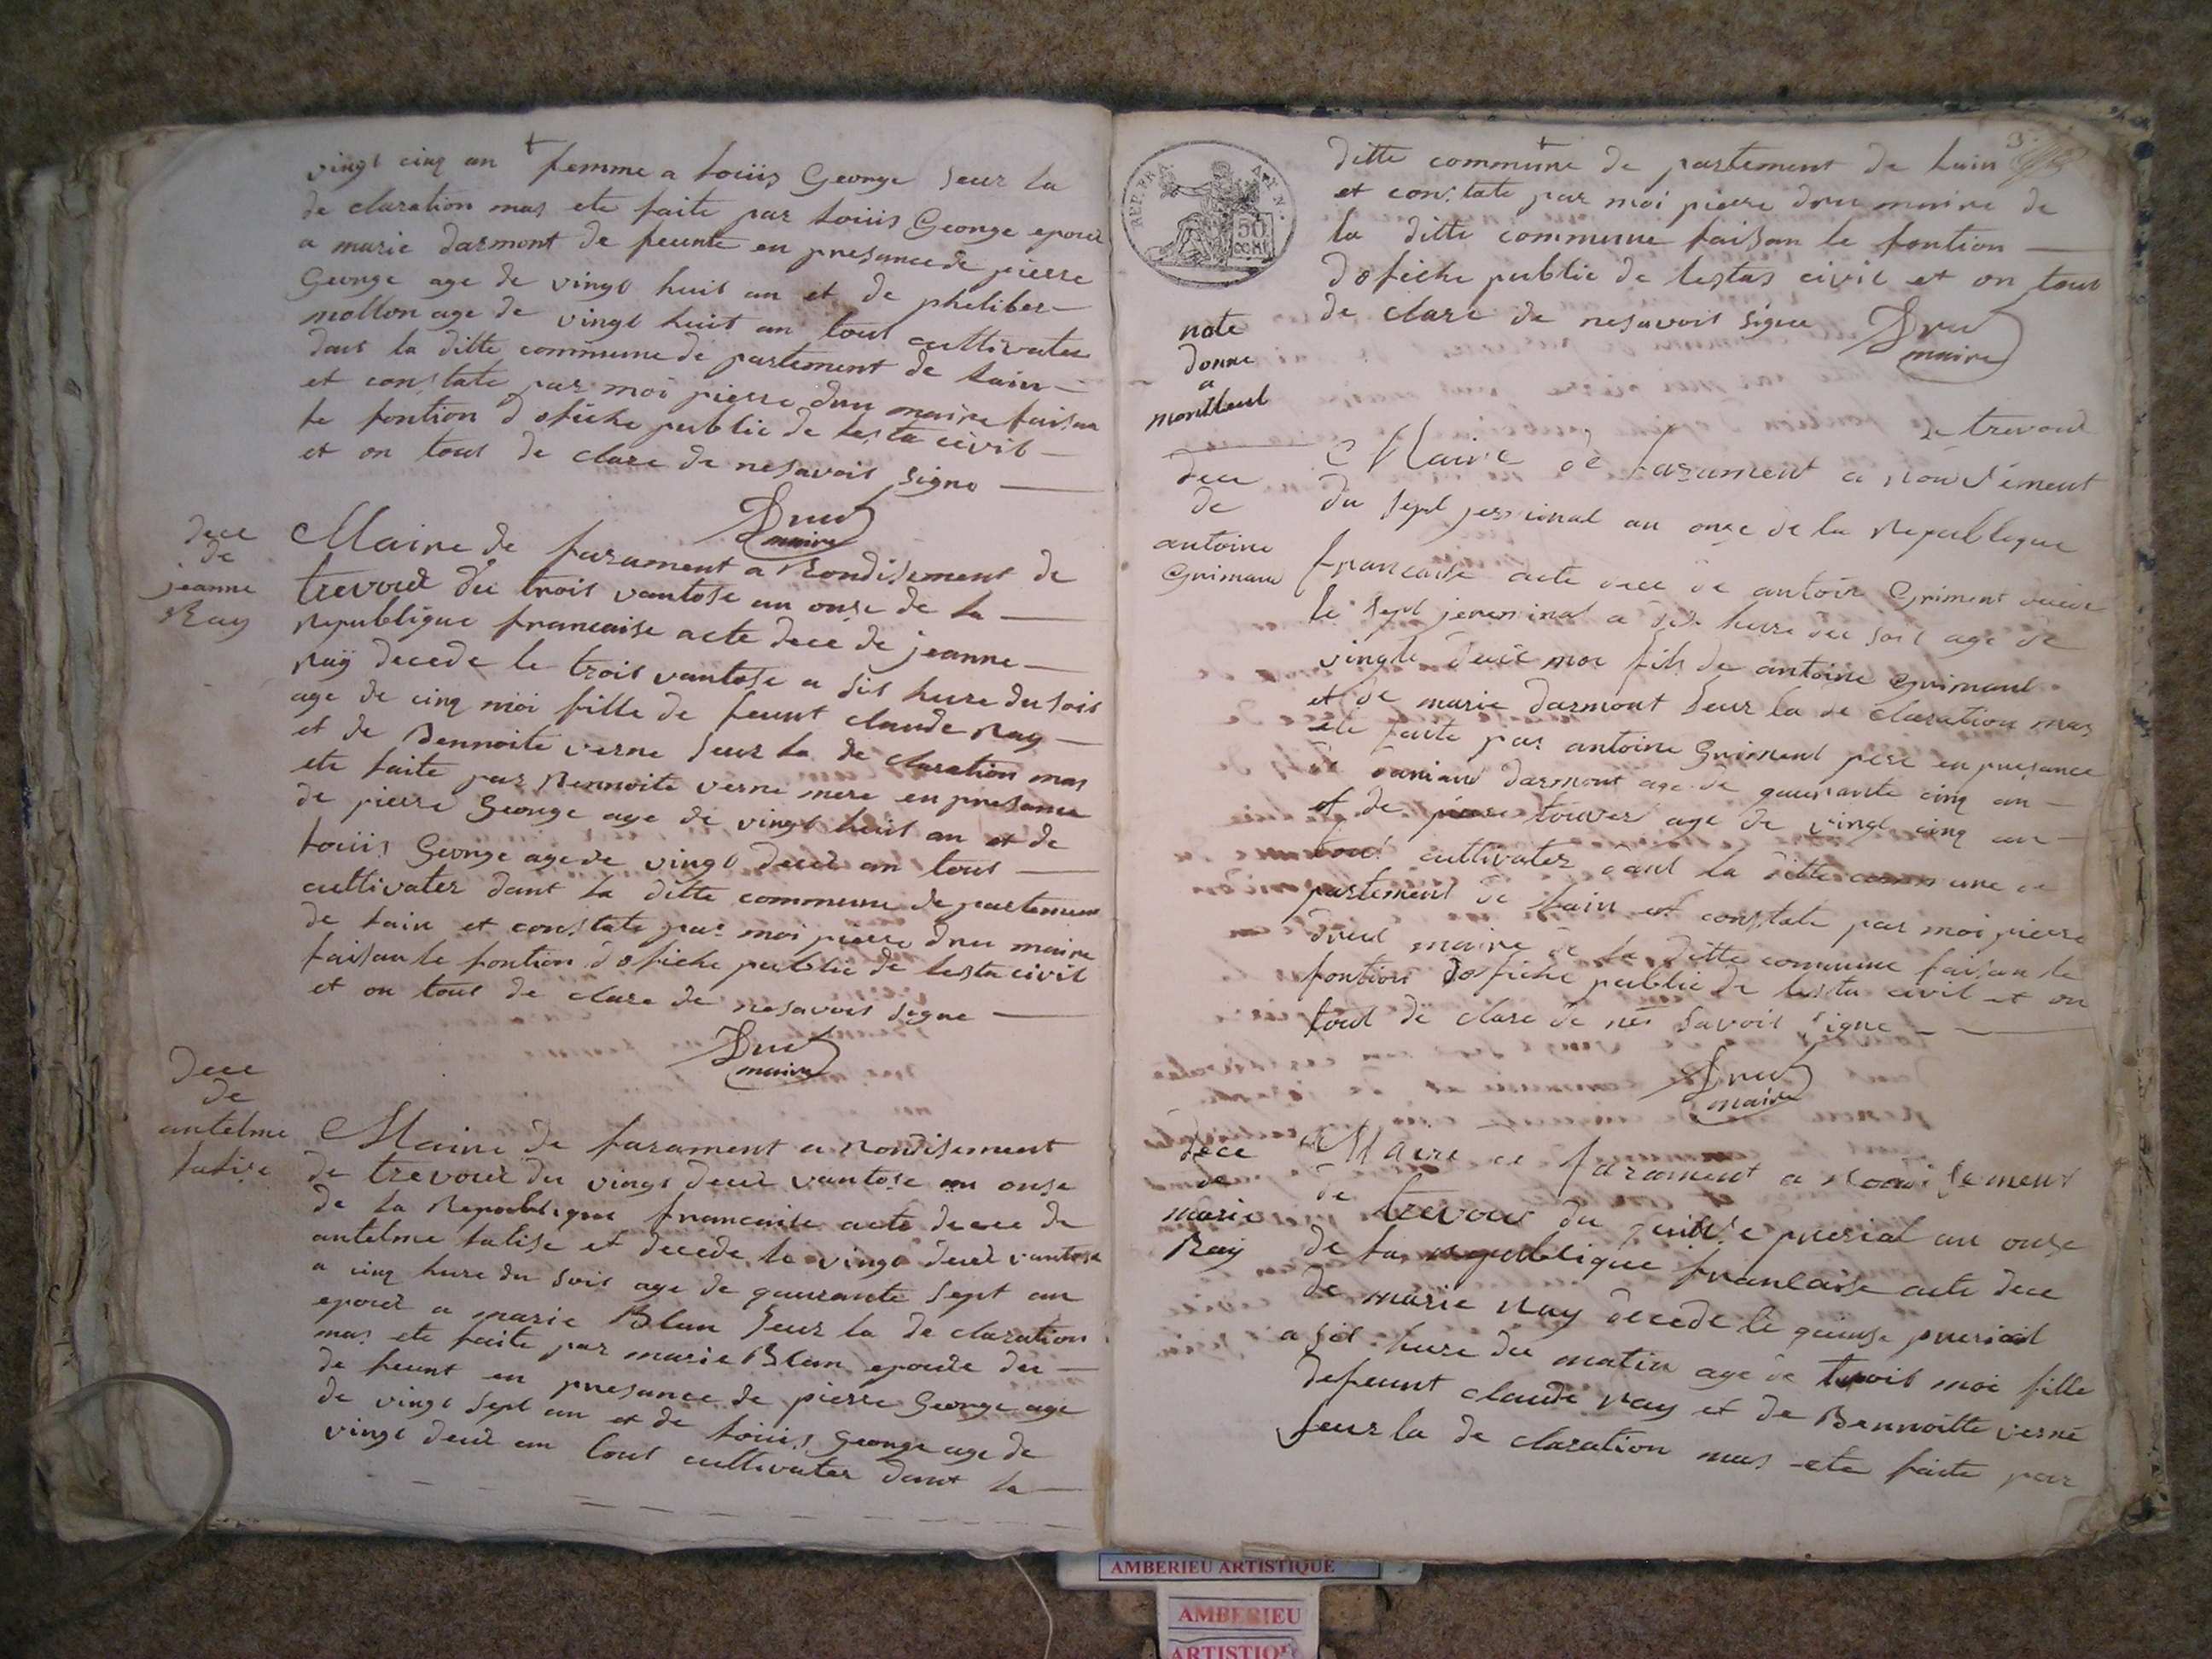 vingt cinq an + femme a louiis George seur la
de claration mas ete faite par louiis George epoux
a marie darmont de feunte en presance de pierre
George age de vingt huit an et de pheliber
mollon age de vingt huit an tout cultivater
dans la ditte commune de partement de lain
et constate par moi pierre dru maire faisan
le fontion dofiche public de lesta civil
et on tout de clare de nesavoir signe
Dru
maire
dece
de
jeanne
Ray
Maire de faramant a Rondisement de
trevoux du trois vantose an onse de la
Republique francaise acte dece de jeanne
Ray decede le trois vantose a sis heure du soir
age de cinq moi fille de feunt claude Ray
et de Bennoite verne seur la de claration mas
ete faite par Bennoite verne mere en presance
de pierre George age de vingt huit an et de
louiis George age de vingt deux an tout
cultivater dant la ditte commune de partement
de lain et constate par moi pierre dru maire
faisan le fontion dofiche public de lesta civil
et on tout de clare de nesavoir signe
Dru
maire
Dece
de
antelme
lalise
Maire de farament a Rondisement
de trevoux du vingt deux vantose an onse
de la Republique francaise acte dece de
antelme lalise et decede le vingt deux vantose
a cinq hure du soir age de quarante sept an
epoux a marie Blan seur la de claration
mas ete faite par marie Blan epouse du
de feunt en presance de pierre George age
de vingt sept an et de louiis George age de
vingt deux an tout cultivater dant la
3
REP. FRA
50
CENT
ditte commune de partement de lain
et constate par moi pierre dru maire de
la ditte commune faisan le fontion
dofiche public de lestas civil et on tout
de clare de nesavoir signe Dru
maire
note
donne
a
montluel
dece
de
antoine
Grimaud
de trevoux
Maire de farament a Rondisement
du sept jerminal an onse de la Republique
francaise acte dece de antoine Griment
le sept jerminal a heure du soir age de
vingte deux moi fils de antoine Grimaul
et de marie darmont seur la de claration mas
ete faite par antoine Griment pere en presance
darmont age de quarante cinq an
et de pierre louver age de vingt cinq an
tout cultivater dant la ditte commune de
partement de lain et constate par moi pierre
drut maire de la ditte commune faisan le
fontion dofiche public de lesta civil et on
tout de clare de ne savoir signe
Dru
maire
dece
de
marie
Ray
Maire de farament a Rondisement
de trevoux du quinse prerial an onse
de la republique francaise acte dece
de marie Ray decede le quinse prerial
a sis hure du matin age de trois moi fille
defeunt claude ray et de Bennoitte verne
seur la de claration mas ete faite par
AMBERIEU ARTISTIQUE
AMBERIEU
ARTISTIQUE